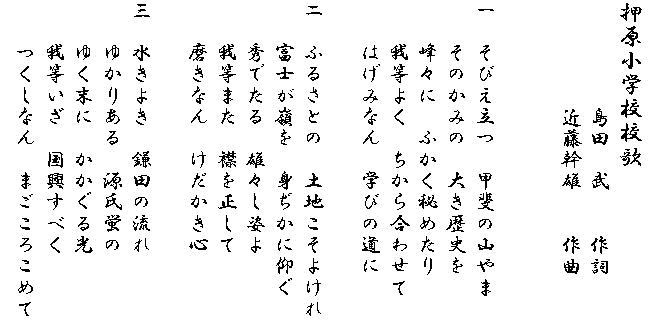 押原小学校校歌
島田 武 作詞
近藤幹雄 作曲
一 そびえ立つ 甲斐の山やま
そのかみの 大き歴史を
峰々に ふかく秘めたり
我等よく ちから合わせて
はげみなん 学びの道に
二 ふるさとの 土地こそよけれ
富士が嶺を 身ぢかに仰ぐ
秀でたる 雄々し姿よ
我等また 襟を正して
磨きなん けだかき心
三 水きよき 鎌田の流れ
ゆかりある 源氏蛍の
ゆく末に かかぐる光
我等いざ 国興すべく
つくしなん まごころこめて